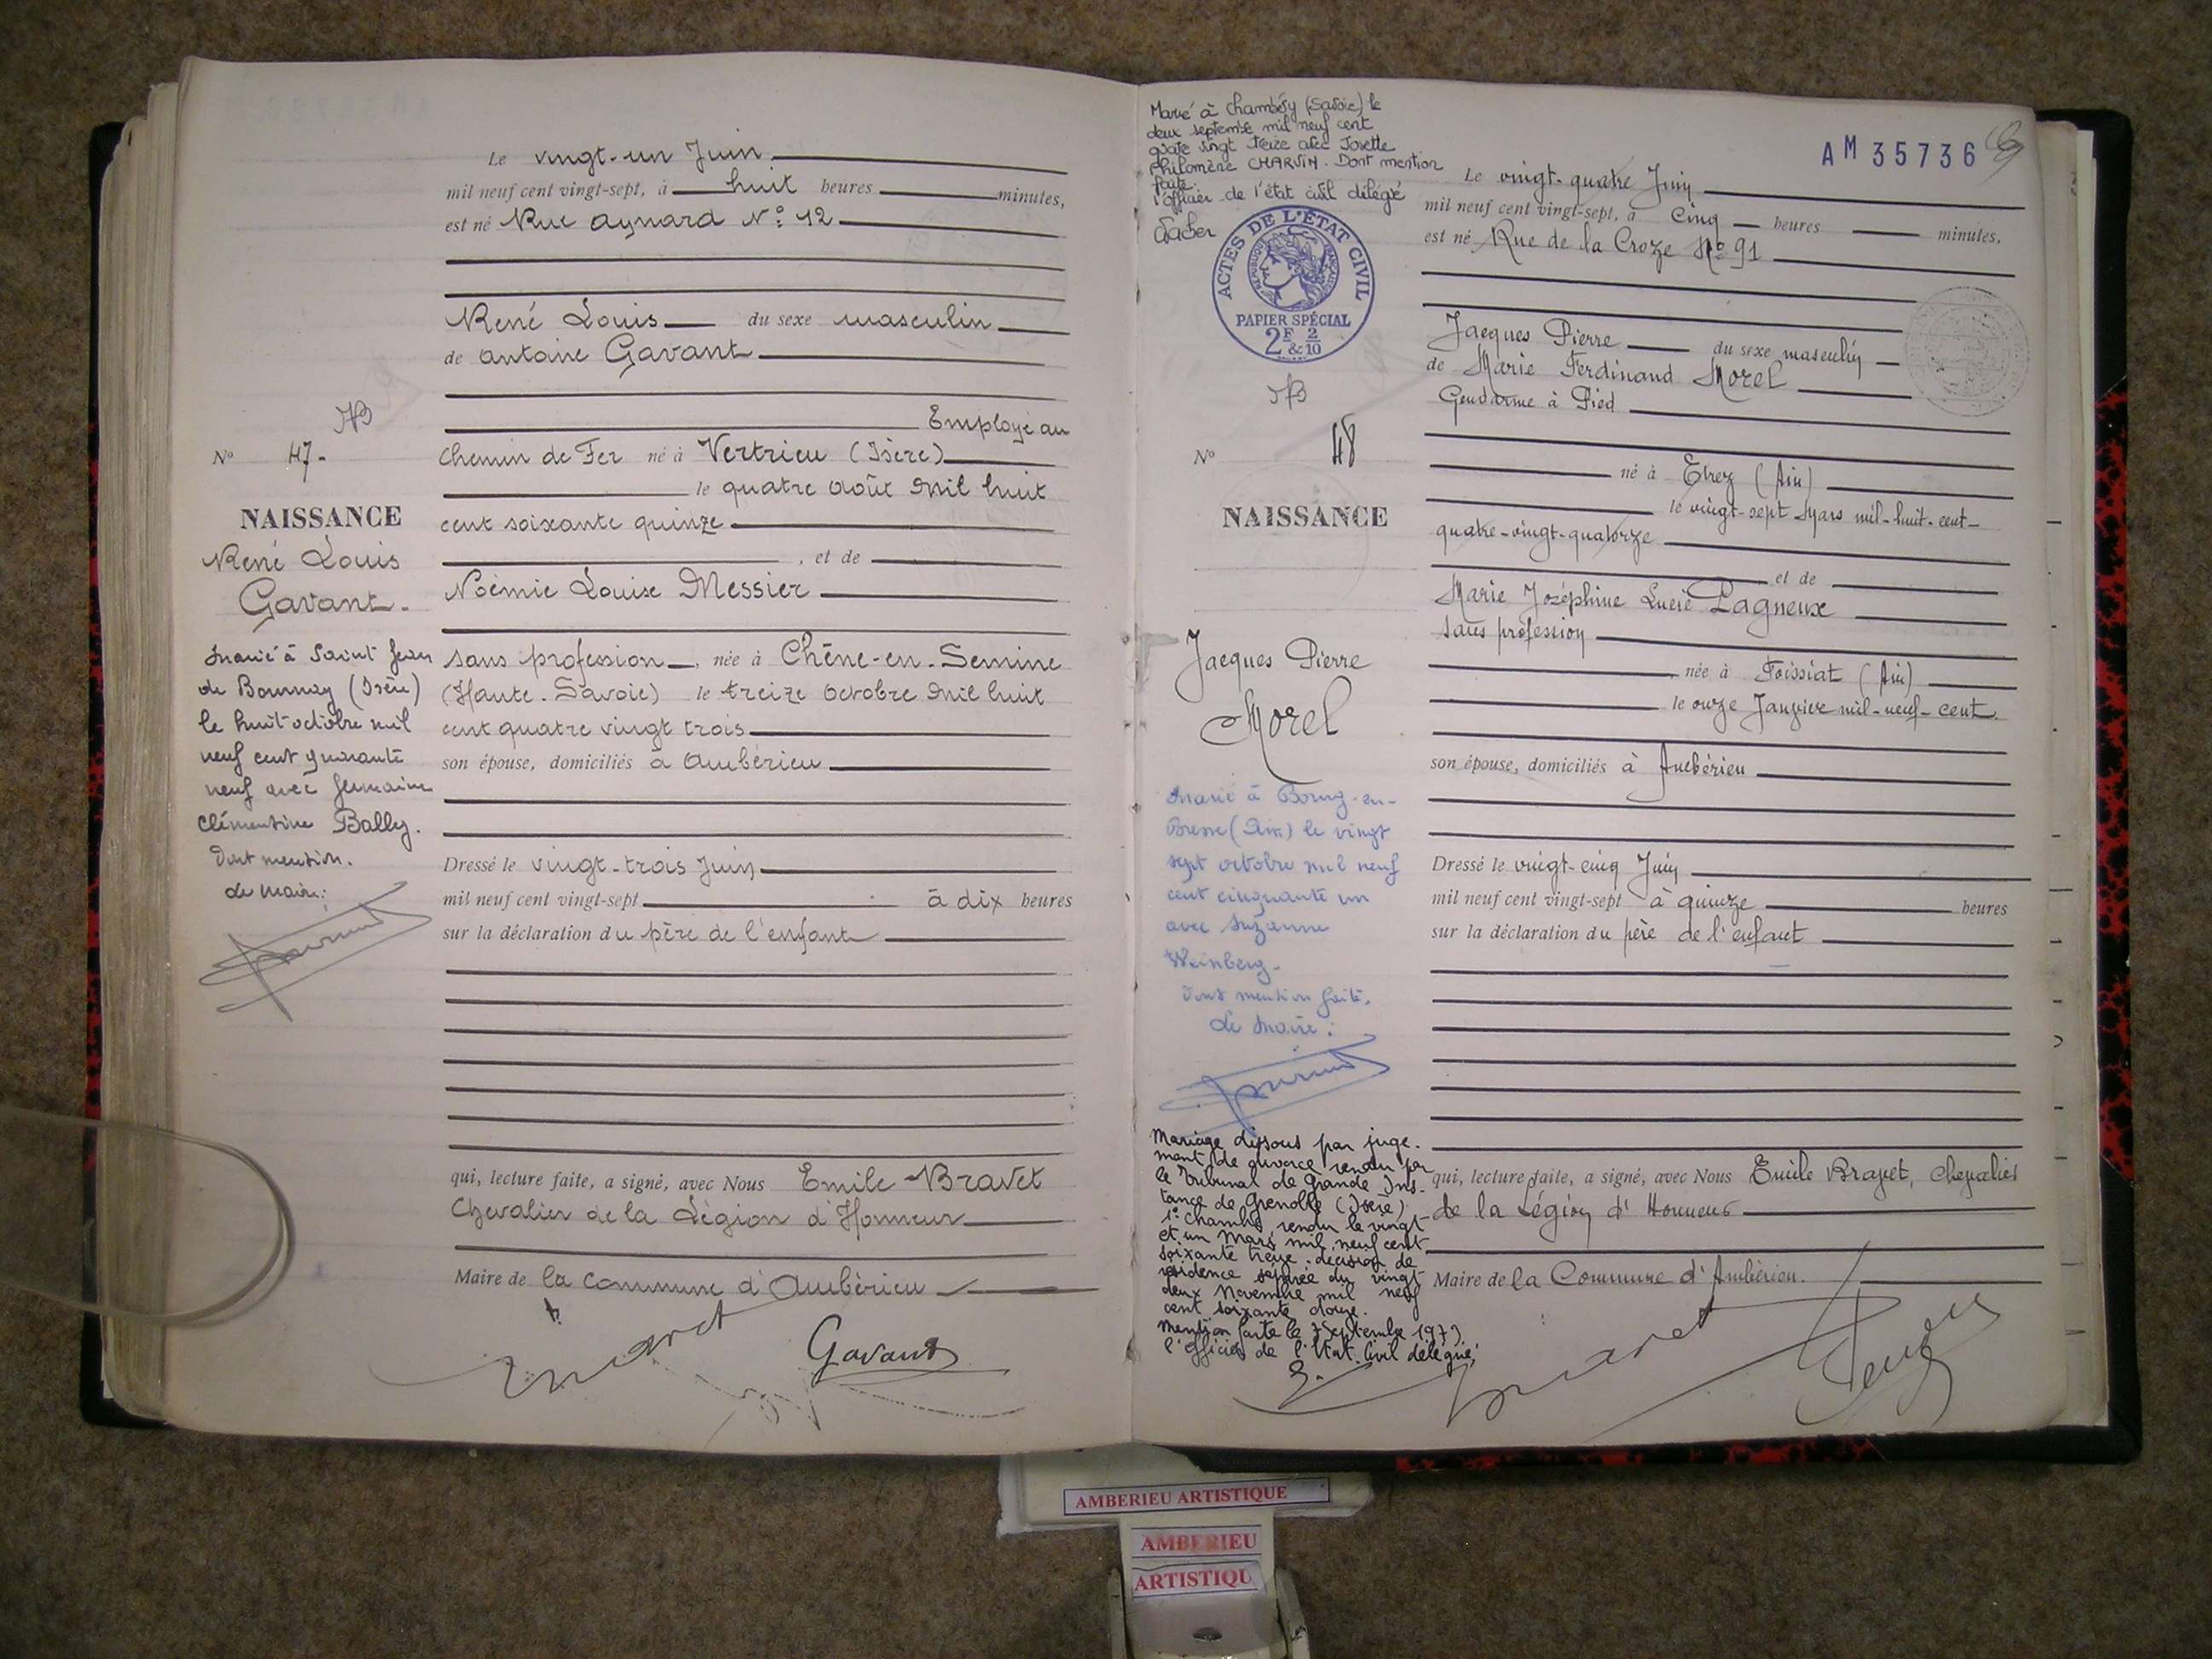 Le vingt-un Juin
mil neuf cent vingt-sept, à huit heures minutes,
est né Rue Aynard N° 12
René Louis du sexe masculin
de Antoine Gavant
Employé au
Chemin de Fer né à Vertrieu (Isère)
le quatre Août mil huit
cent soixante quinze
, et de
Noémie Louise Messier
sans profession, née à Chêne-en-Semine
(Haute-Savoie) le treize Octobre mil huit
cent quatre vingt trois
son épouse, domiciliés à Ambérieu
Dressé le vingt-trois Juin
mil neuf cent vingt-sept à dix heures
sur la déclaration du père de l'enfant
qui, lecture faite, a signé, avec Nous Emile Bravet
Chevalier de la Légion d'Honneur
Maire de la Commune d'Ambérieu
Gavant
N° 47.
NAISSANCE
René Louis
Gavant.
Marié à Saint Jean
de Bournay (Isère)
le huit octobre mil
neuf cent quarante
neuf avec Germaine
Clémentine Bally.
Dont mention.
Le Maire:
Marié à Chambéry (Savoie) le
deux septembre mil neuf cent
quatre vingt treize avec Josette
Philomène CHARVIN. Dont mention
faite.
l'officier de l'état civil délégué
ACTES DE L'ÉTAT CIVIL
RÉPUBLIQUE FRANÇAISE
PAPIER SPÉCIAL
2F & 2/10
N° 48
NAISSANCE
Jacques Pierre
Morel
Marié à Bourg-en-
Bresse (Ain) le vingt
sept octobre mil neuf
cent cinquante un
avec Suzanne
Weinberg.
Dont mention faite.
Le Maire:
Mariage dissous par juge-
ment de divorce rendu par
le Tribunal de Grande Ins-
tance de Grenoble (Isère)
1° Chambre, rendu le vingt
et un Mars mil neuf cent
soixante treize. décision de
résidence séparée du vingt
deux Novembre mil neuf
cent soixante douze.
Mention faite le 7 Septembre 1973
l'Officier de l'Etat Civil délégué,
AM 35736
Le vingt-quatre Juin
mil neuf cent vingt-sept, à cinq heures minutes,
est né Rue de la Croze N° 91
Jacques Pierre du sexe masculin
de Marie Ferdinand Morel
Gendarme à Pied
né à Etrez (Ain)
le vingt-sept Mars mil-huit-cent-
quatre-vingt-quatorze
et de
Marie Joséphine Lucie Pagneux
sans profession
née à Foissiat (Ain)
le onze Janvier mil-neuf-cent.
son épouse, domiciliés à Ambérieu
Dressé le vingt-cinq Juin
mil neuf cent vingt-sept à quinze heures
sur la déclaration du père de l'enfant
qui, lecture faite, a signé, avec Nous Emile Bravet, Chevalier
de la Légion d'Honneur
Maire de la Commune d'Ambérieu.
AMBERIEU ARTISTIQUE
AMBERIEU
ARTISTIQU